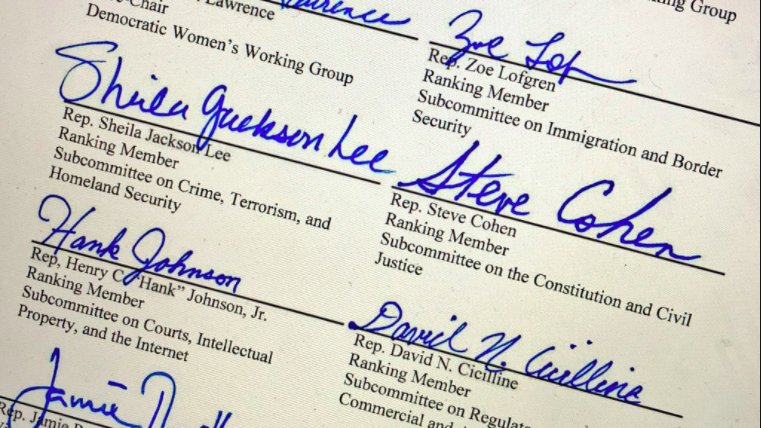 Lawrence
Lawrence
-Chair
Democratic Women's Working Group
Working Group
Zoe Lof
Rep. Zoe Lofgren
Ranking Member
Subcommittee on Immigration and Border
Security
Sheila Jackson Lee
Rep. Sheila Jackson Lee
Ranking Member
Subcommittee on Crime, Terrorism, and
Homeland Security
Steve Cohen
Rep. Steve Cohen
Ranking Member
Subcommittee on the Constitution and Civil
Justice
Hank Johnson
Rep, Henry C. "Hank" Johnson, Jr.
Ranking Member
Subcommittee on Courts, Intellectual
Property, and the Internet
David N. Cicilline
Rep. David N. Cicilline
Ranking Member
Subcommittee on Regulato
Commercial and
Jamie
Rep. Jamie